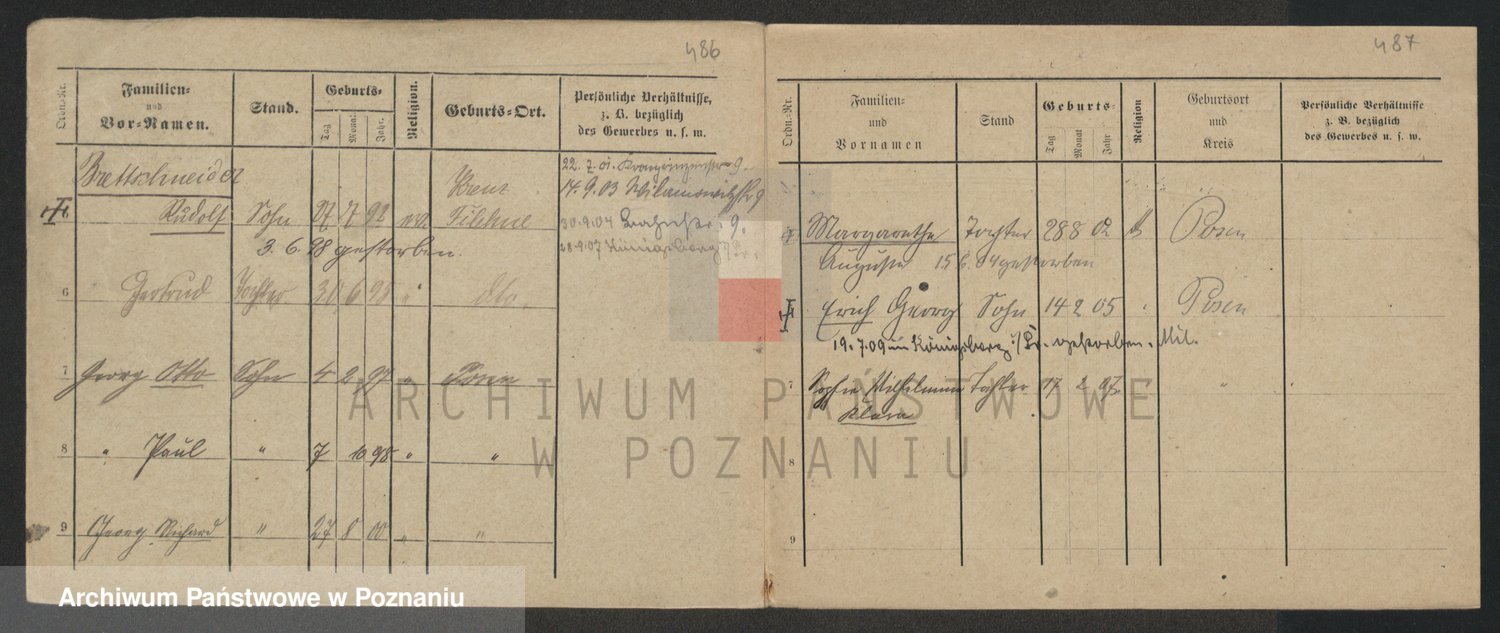 486
Ordn.-Nr.
Familien-
und
Vor-Namen.
Stand.
Geburts-
Tag
Monat.
Jahr.
Religion.
Geburts-Ort.
Persönliche Verhältnisse,
z. B. bezüglich
des Gewerbes u. s. w.
Brettschneider
22. 7. 01. Kronprinzenstr. 9.
14. 9. 03 Wilamowitzstr 9
Rudolf Sohn 7 92 ev. Filehne
30.9.04 9.
3. 6. 98 gestorben.
28.9.07 Königsberg i/Pr.
6 Gertrud Tochter 30 6 95 " dto.
7 Georg Otto Sohn 4 2 97 " Posen
8 " Paul " 7 10 98 " "
9 Georg Richard " 27 8 00 " "
487
Ordn.-Nr.
Familien-
und
Vornamen
Stand
Geburts-
Tag
Monat
Jahr
Religion
Geburtsort
und
Kreis
Persönliche Verhältnisse
z. B. bezüglich
des Gewerbes u. s. w.
Margarethe Tochter 28 8 02 Posen
Auguste 15 6. 04 gestorben
Erich Georg Sohn 14 2 05 Posen
19. 7. 09 in Königsberg i/Pr. gestorben. Mil.
7 Sophie Wilhelmine Tochter 17 2 07 "
Klara
8
9
ARCHIWUM PAŃSTWOWE
W POZNANIU
Archiwum Państwowe w Poznaniu